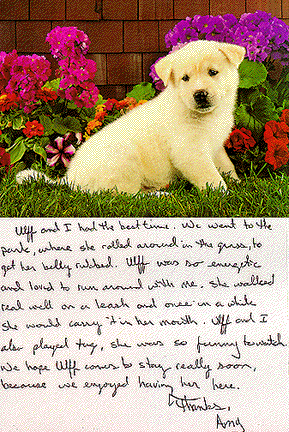 Ulff and I had the best time. We went to the
park, where she rolled around in the grass, to
get her belly rubbed. Ulff was so energetic
and loved to run around with me. She walked
real well on a leash and once in a while
she would carry it in her mouth. Ulff and I
also played tug, she was so funny to watch.
We hope Ulff comes to stay really soon,
because we enjoyed having her here.
Thanks,
Amy